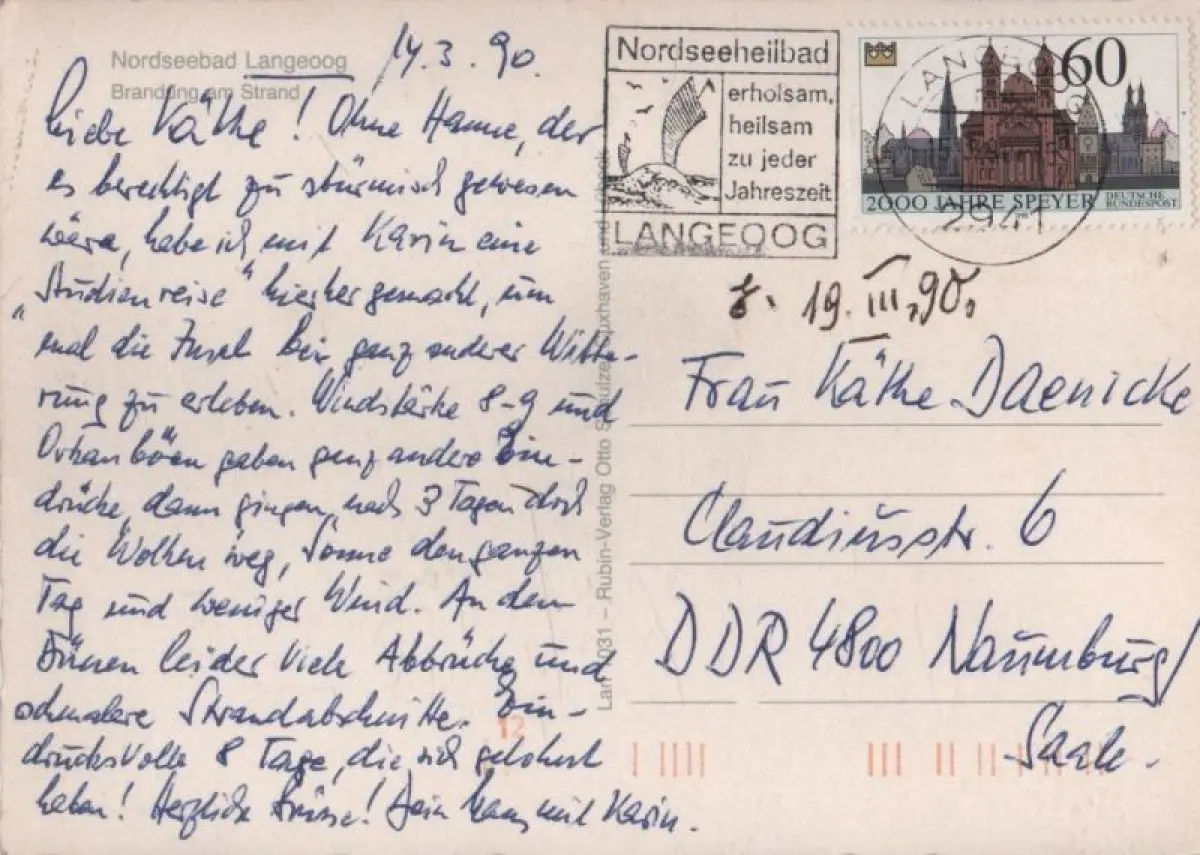 Nordseebad Langeoog
Brandung am Strand
14.3.90.
Liebe Käthe! Ohne Hanne, der
es berechtigt zu stürmisch gewesen
wäre, habe ich mit Karin eine
„Studienreise“ hierher gemacht, um
mal die Insel bei ganz anderer Witte-
rung zu erleben. Windstärke 8-9 und
Orkanböen gaben ganz andere Ein-
drücke, dann gingen nach 3 Tagen doch
die Wolken weg, Sonne den ganzen
Tag und weniger Wind. An den
Dünen leider viele Abbrüche und
schmalere Strandabschnitte. Ein-
drucksvolle 8 Tage, die sich gelohnt
haben! Herzliche Grüsse! Dein Hans mit Karin.
Lan 1031 – Rubin-Verlag Otto Schulze Cuxhaven und
Nordseeheilbad
erholsam,
heilsam
zu jeder
Jahreszeit
LANGEOOG
60
2000 JAHRE SPEYER
DEUTSCHE
BUNDESPOST
LANGEOOG
2941
19. III. 90.
Frau Käthe Daenicke
Claudiusstr. 6
DDR 4800 Naumburg/
Saale.
12